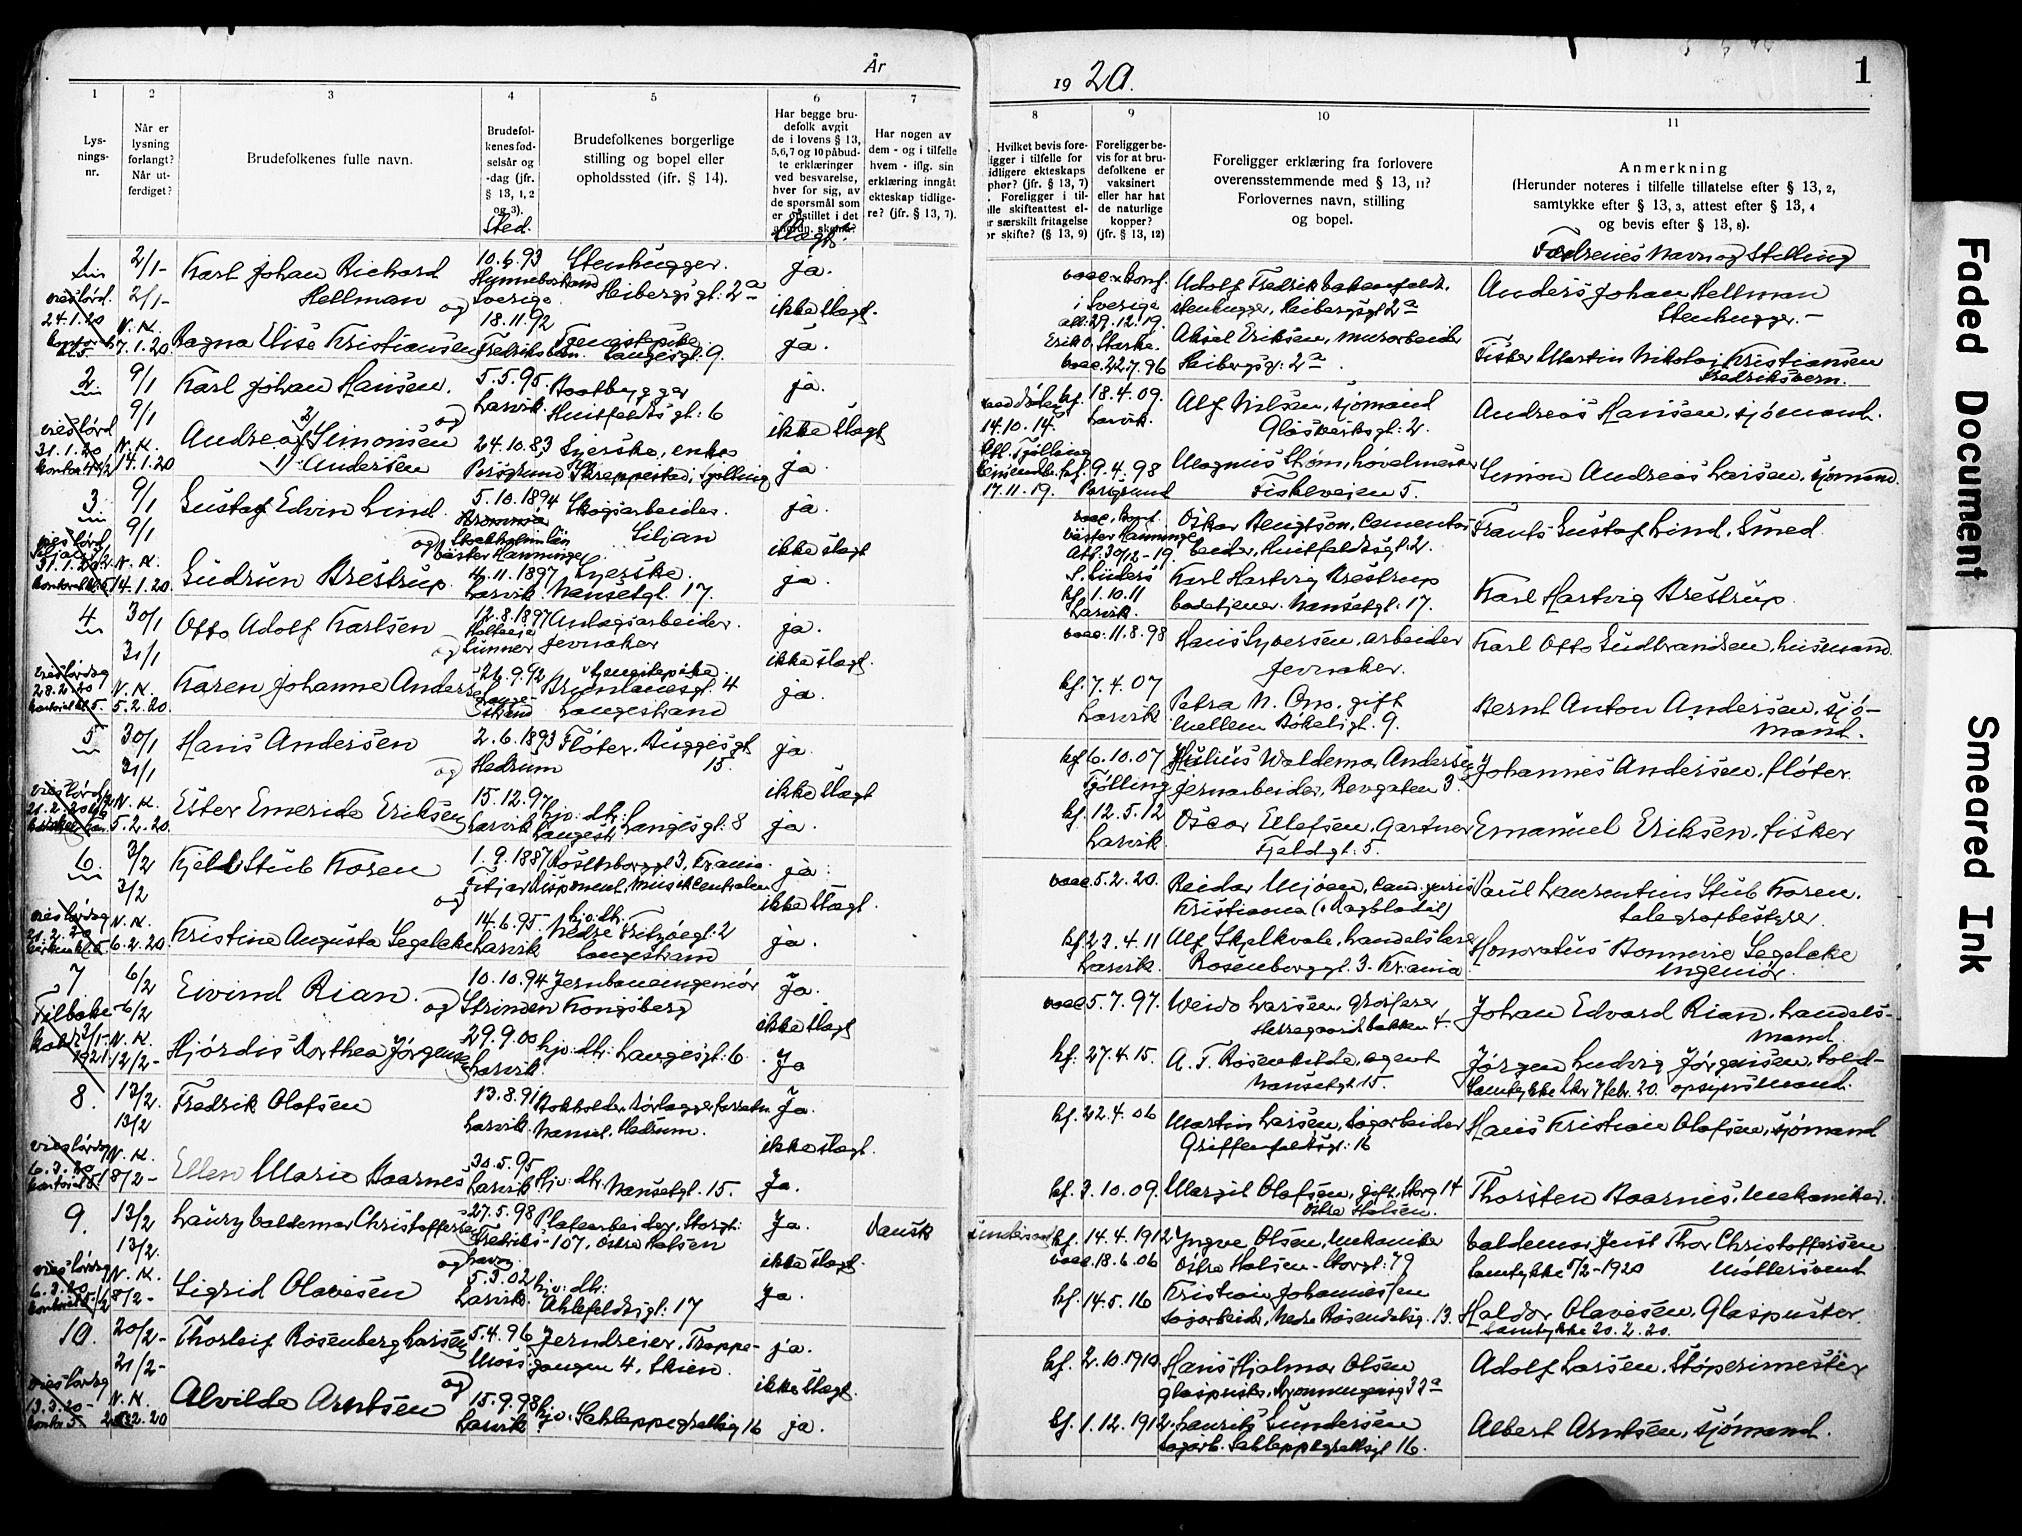 År
19 20.
1
1
2
3
4
5
6
7
8
9
10
11
Lys-
nings-
nr.
Når er
lysning
forlangt?
Når ut-
ferdiget?
Brudefolkenes fulle navn.
Brudefol-
kenes fød-
selsår og
-dag (jfr.
§ 13, 1, 2
og 3).
Sted.
Brudefolkenes borgerlige
stilling og bopel eller
opholdssted (ifr. § 14).
Har begge bru-
defolk avgit
de i lovens § 13,
5,6,7 og 10 påbud-
te erklæringer
ved besvarelse,
hver for sig, av
de spørsmål som
er opstillet i det
anordn. skema?
Slægt?
Har nogen av
dem - og i tilfelle
hvem - iflg. sin
erklæring inngått
ekteskap tidlige-
re? (jfr. § 13, 7).
Hvilket bevis fore-
ligger i tilfelle for
tidligere ekteskaps
ophør? (jfr. § 13, 7)
Foreligger i til-
felle skifteattest el-
er særskilt fritagelse
for skifte? (§ 13, 9)
Foreligger be-
vis for at bru-
defolkene er
vaksinert
eller har hat
de naturlige
kopper?
(jfr. § 13, 12)
Foreligger erklæring fra forlovere
overensstemmende med § 13, 11?
Forlovernes navn, stilling
og bopel.
Anmerkning
(Herunder noteres i tilfelle tillatelse efter § 13, 2,
samtykke efter § 13, 3, attest efter § 13, 4
og bevis efter § 13, 8).
Fædrenes Navn og Stilling
1
2/1-
2/1-
24.1.20
N.K.
7.1.20
Karl Johan Richard
Hellman
og
Ragna Elise Kristiansen
10.6.93
Sverige
18.11.92
Fredriksværn.
Stenhugger.
Heibergsgt: 2a
Tjenestepike
Langesgt. 9
ja.
ikke slægt.
ja.
i Sverige
att. 29.12.19.
vacc. 22.7.96
Adolf Fredrik
stenhugger, Heibergsgt 2a
Aksel Eriksen, murarbeider
Heibergsgt: 2a.
Anders Johan Hellman
Stenhugger.-
Fisker Martin Nikolai Kristiansen
Fredriksvern.
2.
9/1
9/1
31.1.20
N.K.
14.1.20
Karl Johan Hansen.
og
Andrea Simonsen
Andersen
5.5.95
Larvik.
24.10.83
Porsgrund
Baatbygger
Huitfeldtsgt: 6
Syerske, enke
Skreppestad, Tjølling
ja.
ikke slægt
ja.
14.10.14.
Att. Tjølling
17.11.19.
18.4.09.
Larvik.
9.4.98
Porsgrund
Alf Nilsen, sjømand
Glasverksgt: 2.
Magnus Strøm, høvelmester
Fiskeveien 5.
Andreas Hansen, sjømand.
Simon Andreas Larsen, sjømand.
3.
9/1
9/1
31.1.20
N.K.
14.1.20.
Gustaf Edvin Lind.
og
Gudrun Brestrup
5.10.1894
Stockholms län
Väster Hanninge
4.11.1897
Larvik.
Skogsarbeider.
Siljan
Syerske.
Nansetgt. 17.
ja.
ikke slægt
ja.
Väster Hanninge
Att. 30/12-19.
kf. 1.10.11
Larvik.
Oskar Bengtson, Cementar-
beider, Huitfeldtsgt. 2.
Karl Hartvig Brestrup
badetjener. Nansetgt. 17.
Frants Gustaf Lind. Smed.
Karl Hartvig Brestrup
4
30/1
31/1
28.2.20
N.K.
5.2.20.
Otto Adolf Karlsen
og
Karen Johanne Anders
12.8.1897
Lunner
26.9.92
Lange-
strand
Anlægsarbeider.
Jevnaker
tjenestepike.
Brumlanesgt. 4
Langestrand
ja.
ikke slægt.
ja.
vacc. 11.8.98
kf. 7.4.07
Larvik
Hans Syversen, arbeider
Jevnaker.
Petra N. Omo. gift
Mellem Bøkeligt. 9.
Karl Otto Gudbrandsen, husmand.
Bernt Anton Andersen. sjø-
mand.
5
30/1
31/1
21.2.20
N.K.
5.2.20.
Hans Andersen
og
Ester Emerida Eriksen
2.6.1893
Hedrum
15.12.97
Larvik
Fløter. Buggesgt
15.
hjv: dtr: Langesgt: 8
Langestr
ja.
ikke slægt
ja.
kf 6.10.07
Tjølling
kf. 12.5.12
Larvik.
Julius Waldemar Andersen
jernarbeider, Revgaten 3.
Oscar Ellefsen, Gartner
Fjeldgt: 5.
Johannes Andersen. fløter.
Emanuel Eriksen. fisker
6.
3/2
3/2
21.2.20
N.K.
6.2.20.
Kjell Stub Koren
og
Kristine Augusta Segelcke
1.9.1887
14.6.95.
Larvik
Rosenborggt 3, Kr.ania.
Disponent, Musikcentralen
hjv: dtr:
Nedre Fritzøegt. 2
Langestrand
ja.
ikke slægt.
ja.
vacc. 5.2.20.
kf. 23.4.11
Larvik.
Reidar Mjøen, Cand. juris
Kristiania (Dagbladet)
Alf Skjelkvale, handelslærer
Rosenborggt. 3. Kr.ania
Paul Laurentius Stub Koren.
telegrafbestyrer
Honoratus Bonnevie Segelcke
ingeniør.
7
6/2
-6/2
Tilbake
kaldt 3/1-
1921
N.K.
12/2-
Eivind Rian.
og
Hjørdis Dorthea Jørgensen
10.10.94
Strinden
29.9.00
Larvik
Jernbaneingeniør
Kongsberg
hjv: dtr: Langesgt: 6.
Ja.
ikke slægt
Ja
vacc 5.7.97.
kf. 27.4.15.
Weido Larsen, grosserer
Herregaardsbakken 4.
A. T. Rosenkilde, agent
Nansetgt 15.
Johan Edvard Rian, handels-
mand.
Jørgen Ludvig Jørgensen, told-
Samtykke Lkv 7 febr. 20. opsynsmand.
8.
13/2.
13/2
6.3.20
N.K.
18/2-
Fredrik Olafsen
Ellen Marie Baarnes
13.8.91
Larvik.
30.5.95
Larvik
Nanset. Hedrum.
Hjv: dtr. Nansetgt. 15.
Ja.
ikke slægt.
Ja.
kf. 22.4.06
kf. 3.10.09.
Martin Larsen, Sagarbeider
Griffenfeldtsgt: 16
Margit Olafsen, gift, Storg 14
Østre Halsen.
Hans Kristian Olafsen, sjømand
Thorsten Baarnes, Mekaniker.
9.
13/2
13/2.
6.3.20
N.K.
18/2-
Laury Valdemar Christoffersen
og
Sigrid Olavesen
27.5.98
Fredriks-
havn.
5.3.02
Larvik.
Platearbeider, Storgt:
107, Østre Halsen
hjv: dtr:
Ahlefeldtsgt: 17
Ja.
ikke slægt.
Ja.
dansk
kf. 14.4.1912
vacc. 18.6.06
kf. 14.5.16
Yngve Olsen, Mekaniker
Østre Halsen - Storgt: 79
Kristian Johannessen
Sagarbeider, Nedre Rosendalsg. 13.
Valdemar Just Thor Christoffersen
Samtykke /2-1920 Møllersvend
Haldor Olavesen, Glaspuster.
Samtykke 20.2.20.
10.
20/2-
21/2-
13.3.20-
N.K.
Thorleif Rosenberg Larsen
og
Alvilde Arntsen
5.4.96
Moss
15.9.98
Larvik
Jerndreier, Trappe-
gangen 4, Skien.
hjv: Schleppegrellsg 16
ja.
ikke slægt.
ja.
kf. 2.10.1910
kf. 1.12.1912
Hans Hjalmar Olsen
glaspuster, Dronningensg 33a
Lauritz Gundersen
Sagarb. Schleppegrellsgt 16.
Adolf Larsen. Støperimester
Albert Arntsen, sjømand.
Faded Document
Smeared Ink